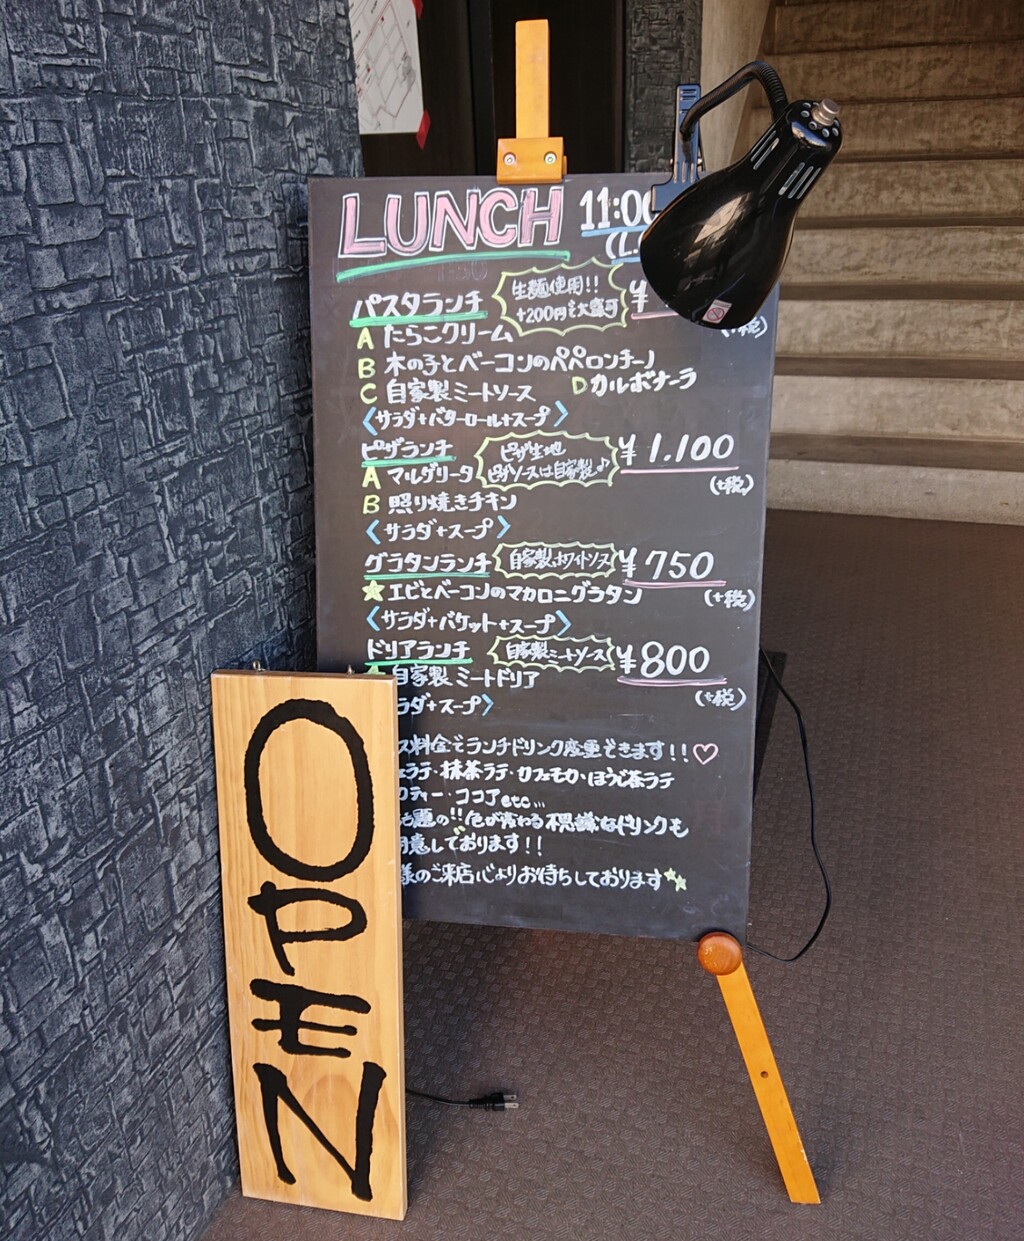 LUNCH 11:00
(L.
パスタランチ
生麺使用!!
+200円で大盛可
¥
A たらこクリーム
B 木の子とベーコンのペペロンチーノ
C 自家製ミートソース D カルボナーラ
〈サラダ+バターロール+スープ〉
ピザランチ
ピザ生地
ピザソースは自家製♪
¥1.100
(+税)
A マルゲリータ
B 照り焼きチキン
〈サラダ+スープ〉
グラタンランチ 自家製ホワイトソース ¥750
☆エビとベーコンのマカロニグラタン (+税)
〈サラダ+バケット+スープ〉
ドリアランチ 自家製ミートソース ¥800
自家製ミートドリア
(+税)
ラダ+スープ〉
ス料金でランチドリンク変更できます!!♡
ラテ・抹茶ラテ・カフェモカ・ほうじ茶ラテ
ティー・ココア etc...
題の!!色が変わる不思議なドリンクも
用意しております!!
様のご来店心よりお待ちしております☆☆
OPEN